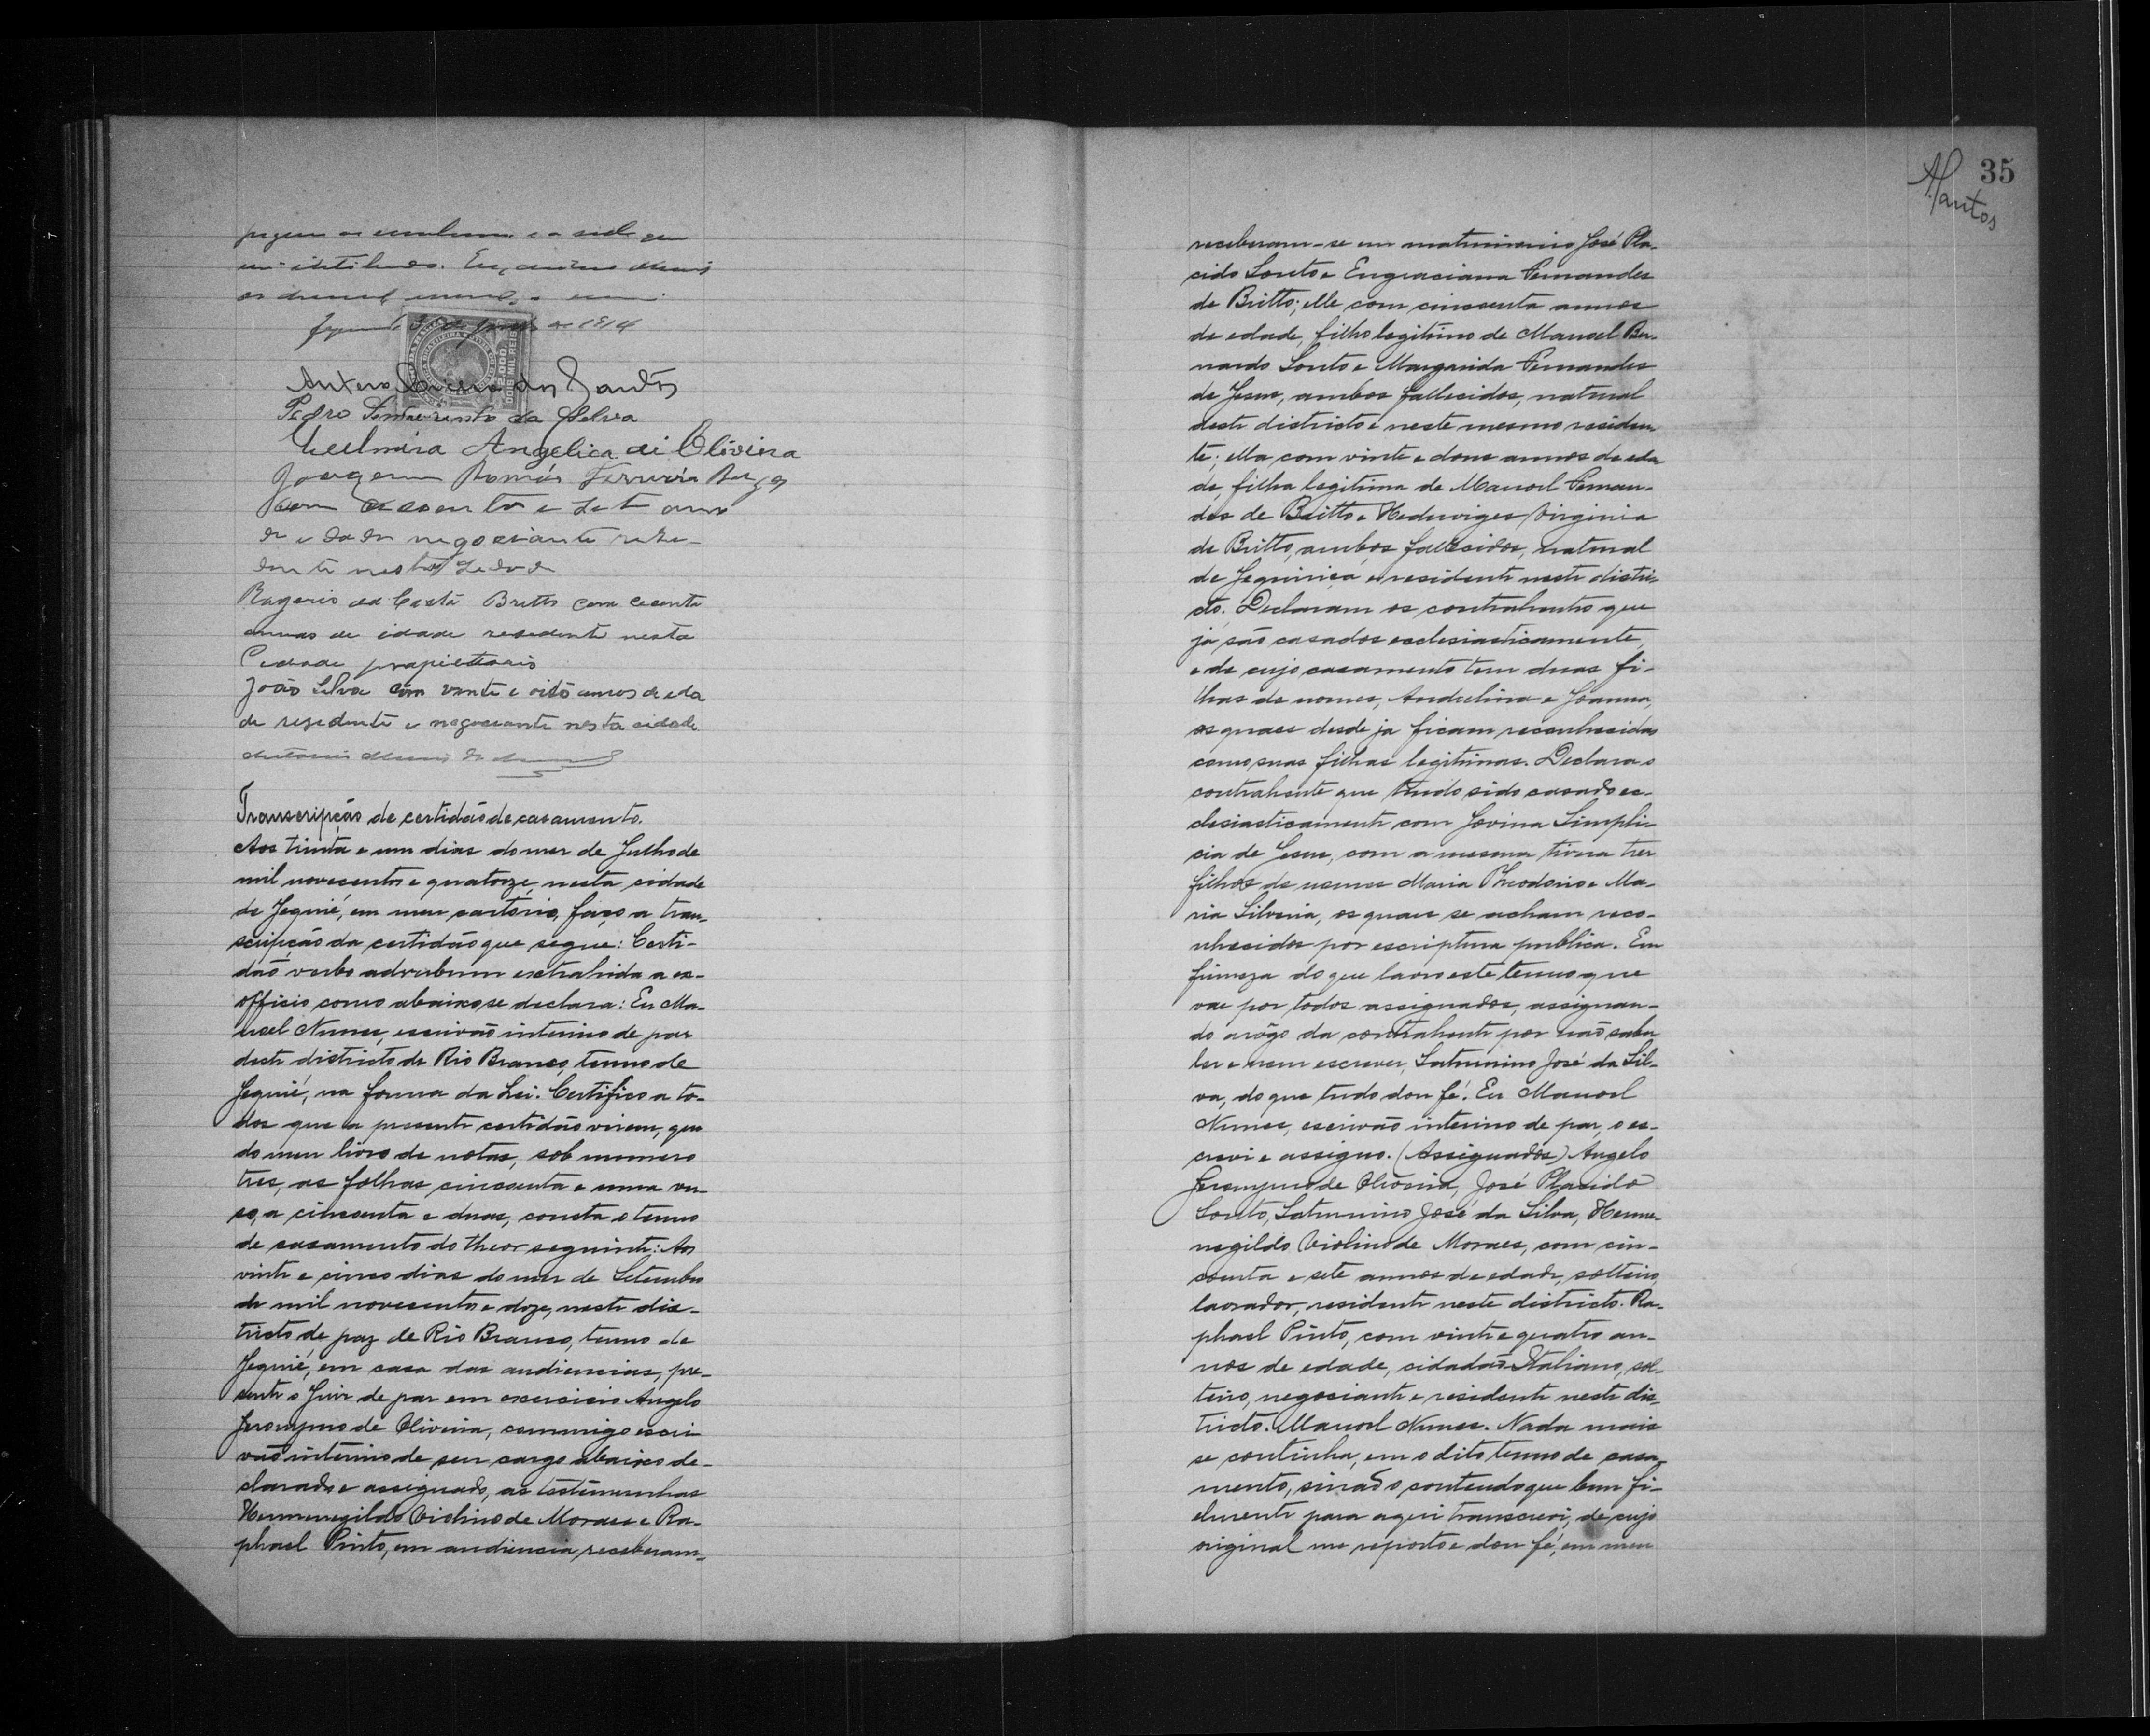 de 1914
Antero Cicero dos Santos
Pedro da Silva
Angelica de Oliveira
Ferreira
com e sete anno
de edade negociante resi-
dente nesta
Rogerio da Costa Britto com cecenta
annos de idade residente nesta
Cidade propietario
João Silva com vinte e oito annos de eda
de residente e negociante nesta cidade
Antonio
Transcripção de certidão de casamento.
Aos trinta e um dias do mez de Julho de
mil novecentos e quatorze, nesta cidade
de Jequié, em meu cartorio, faço a tran-
scripção da certidão que segue: Certi-
dão verbo adverbum extrahida a ex-
officio como abaixo se declara: Eu Ma-
noel Nunes, escrivão interino de paz
deste districto de Rio Branco, termo de
Jequié, na forma da Lei. Certifico a to-
dos que a presente certidão virem, que
do meu livro de notas, sob numero
tres, as folhas cincoenta e uma ver-
so, a cincoenta e duas, consta o termo
de casamento do theor seguinte: Aos
vinte e cinco dias do mez de Setembro
de mil novecentos e doze, neste dis-
tricto de paz de Rio Branco, termo de
Jequié, em casa das audiencias, pre-
sente o Juiz de paz em exercicio Angelo
Jeronymo de Oliveira, commigo escri-
vão interino de seu cargo abaixo de-
clarado e assignado, as testemunhas
Hermenegildo Violino de Moraes e Ra-
phael Pinto, em audiencia receberam-
35
ASantos
receberam-se em matrimonio José Pla-
cido Souto e Engraciana Fernandes
de Britto; elle com cincoenta annos
de edade, filho legitimo de Manoel Ber-
nardo Souto e Margarida Fernandes
de Jesus, ambos fallecidos, natural
deste districto e neste mesmo residen-
te; ella com vinte e dous annos de eda
de, filha legitima de Manoel Fernan-
des de Britto e Hedwiges Virginia
de Britto, ambos fallecidos, natural
de Jequiriçá e residente neste distri-
cto. Declaram os contrahentes que
já são casados ecclesiasticamente,
e de cujo casamento tem duas fi-
lhas de nomes, Andrelina e Joanna,
as quaes desde já ficam reconhecidas
como suas filhas legitimas. Declara o
contrahente que tendo sido casado ec-
clesiasticamente com Jovina Simpli-
cia de Jesus, com a mesma tivera tres
filhos de nomes Maria Theodorio e Ma-
ria Silveria, os quaes se acham reco-
nhecidos por escriptura publica. Em
firmeza do que lavro este termo que
vae por todos assignados, assignan-
do arôgo da contrahente por não saber
ler e nem escrever, Saturnino José da Sil-
va, do que tudo dou fé. Eu Manoel
Nunes, escrivão interino de paz, o es-
crevi e assigno. (Assignados) Angelo
Jeronymo de Oliveira, José Placido
Souto, Saturnino José da Silva, Herme-
negildo Violino de Moraes, com cin-
coenta e sete annos de edade, solteiro,
lavrador, residente neste districto. Ra-
phael Pinto, com vinte e quatro an-
nos de edade, cidadão Italiano, sol-
teiro, negociante e residente neste dis-
tricto. Manoel Nunes. Nada mais
se continha, em o dito termo de casa-
mento, sinão o contendo que bem fi-
elmente para aqui transcrevi, de cujo
original me reporto e dou fé, em meu